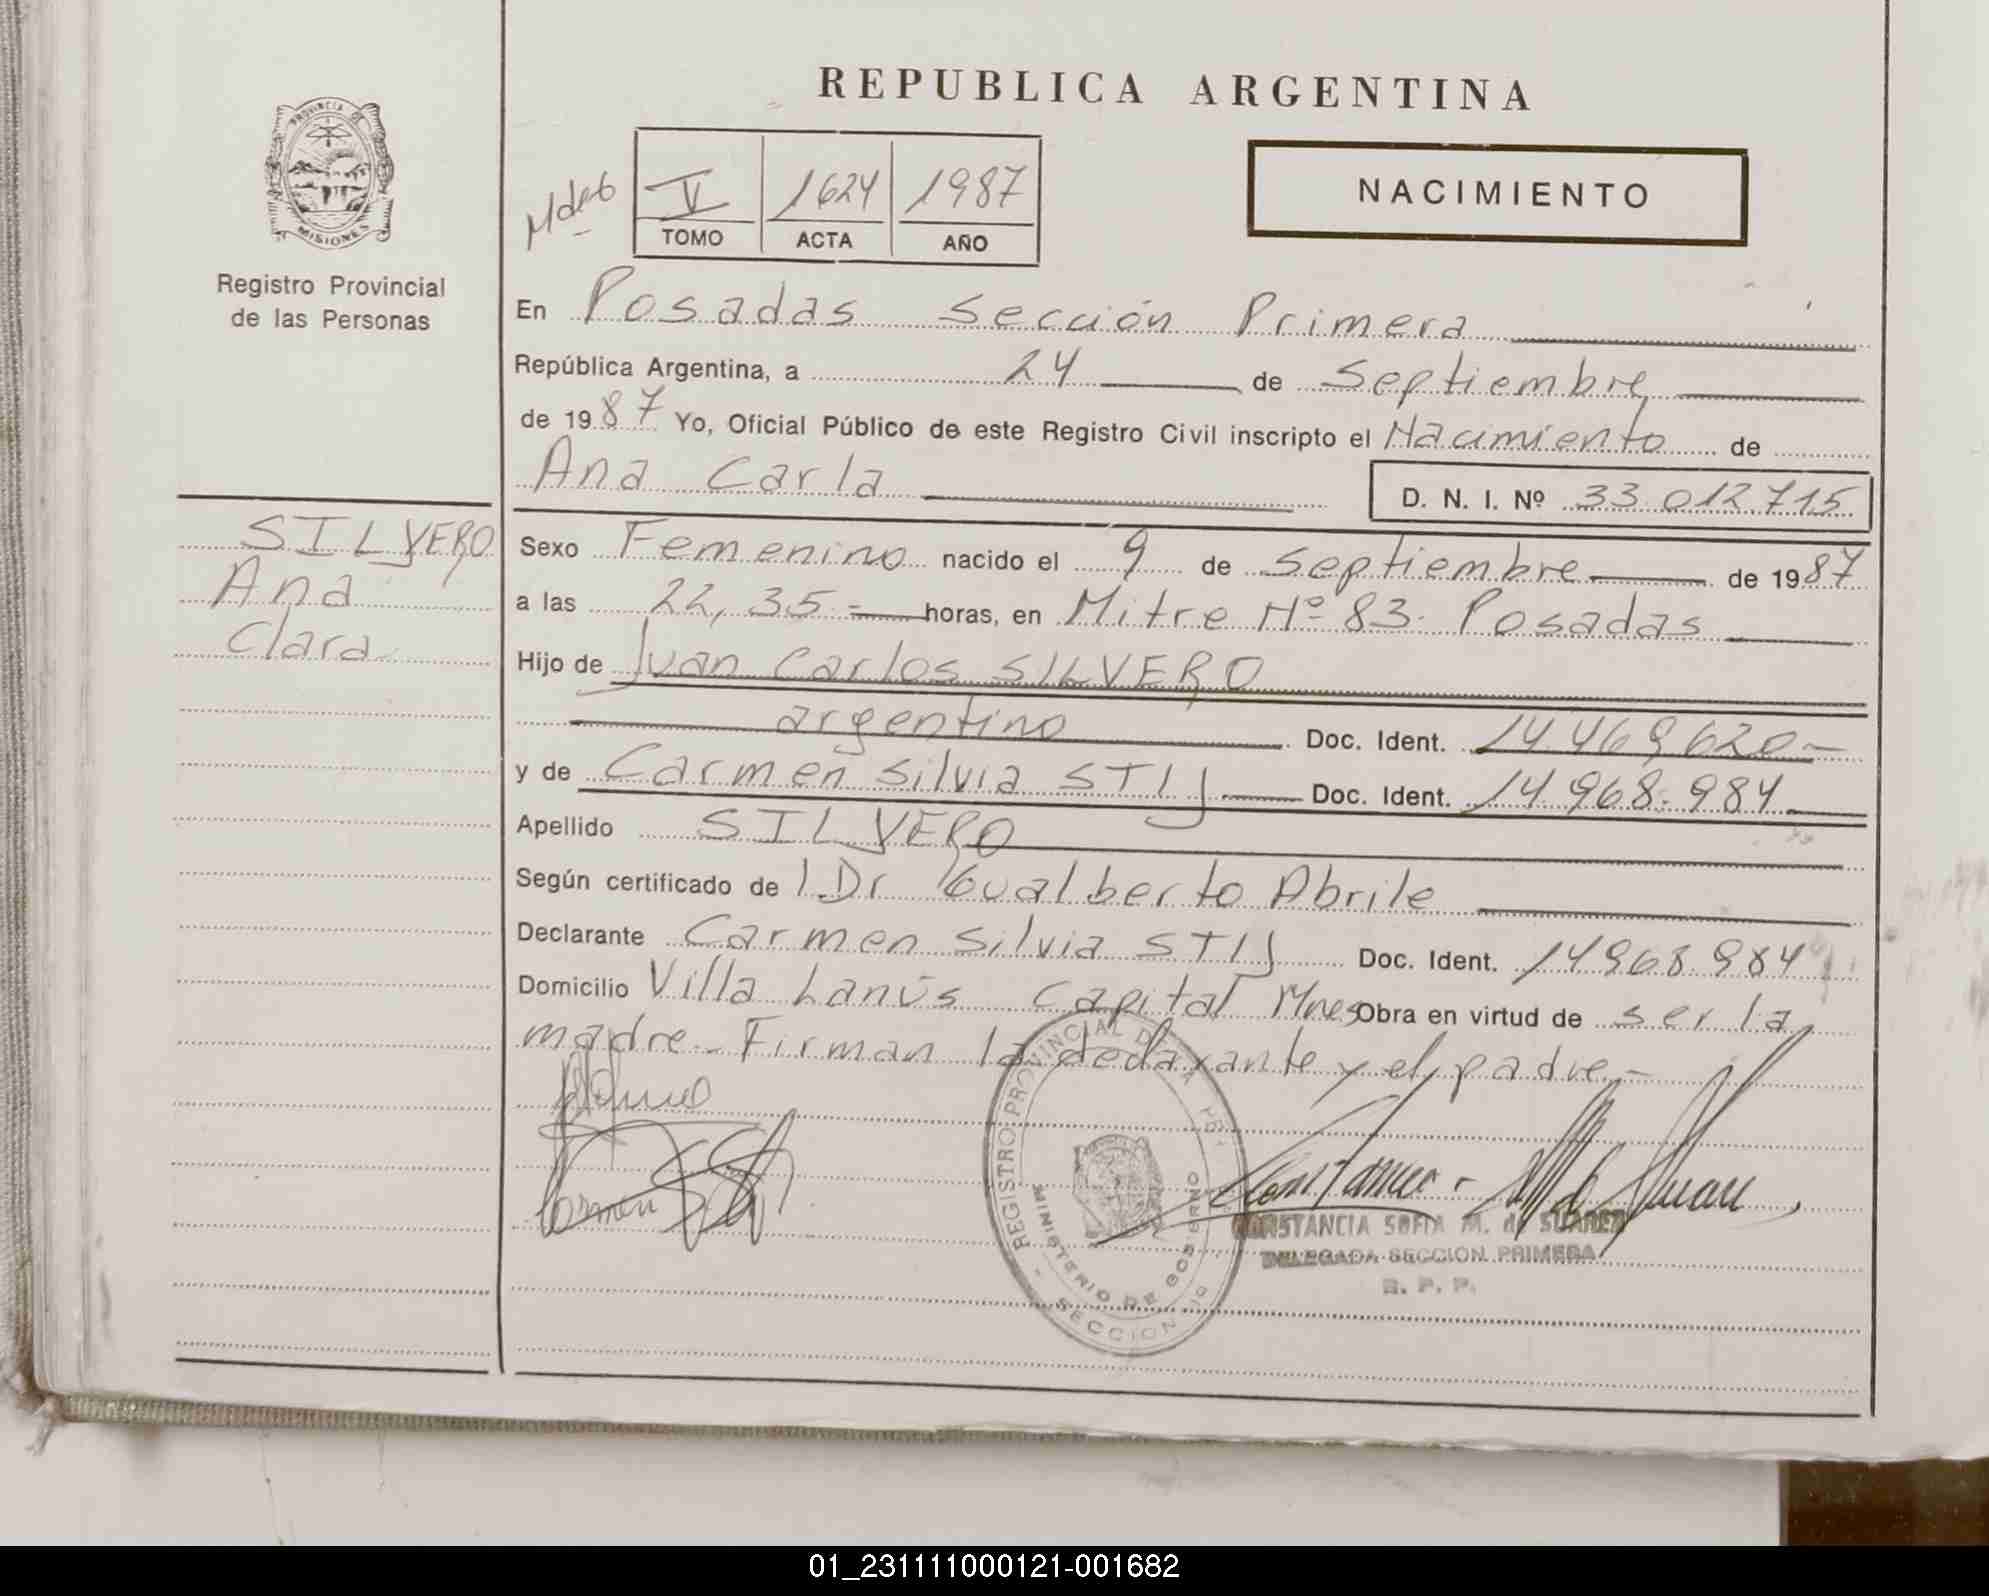 REPUBLICA ARGENTINA
PROVINCIA DE
MISIONES
Registro Provincial
de las Personas
V 1624 1987
TOMO ACTA AÑO
NACIMIENTO
En Posadas Sección Primera
República Argentina, a 24 de Septiembre
de 1987 Yo, Oficial Público de este Registro Civil inscripto el Nacimiento de
Ana Carla
D. N. I. Nº 33.012.715
SILVERO
Ana
Clara
Sexo Femenino nacido el 9 de Septiembre de 1987
a las 22,35 horas, en Mitre Nº 83. Posadas
Hijo de Juan Carlos SILVERO
argentino Doc. Ident. 14.469.620-
y de Carmen Silvia STIJ Doc. Ident. 14.968.984
Apellido SILVERO
Según certificado de l Dr Gualberto Abrile
Declarante Carmen Silvia STIJ Doc. Ident. 14968.984
Domicilio Villa Lanús Capital Mnes Obra en virtud de ser la
madre - Firman la declarante y el padre.-
REGISTRO PROVINCIAL DE LA
MINISTERIO DE GOBIERNO
SECCION
CONSTANCIA SOFIA M. de SUAREZ
DELEGADA SECCION PRIMERA
R. P. P.
01_231111000121-001682